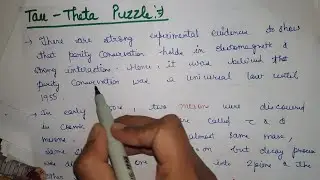 Tau - Theta Puzzle :⇒
→ There are strong experimental evidence to show
that parity conservation holds in electromagnetic &
strong interaction. Hence, it was believed the
parity Conservation was a universal law until
1955.
→ In early , two mesons were discovered
in Cosmic called τ & θ
same almost same mass,
same but decay process
was one into 2 pions & the